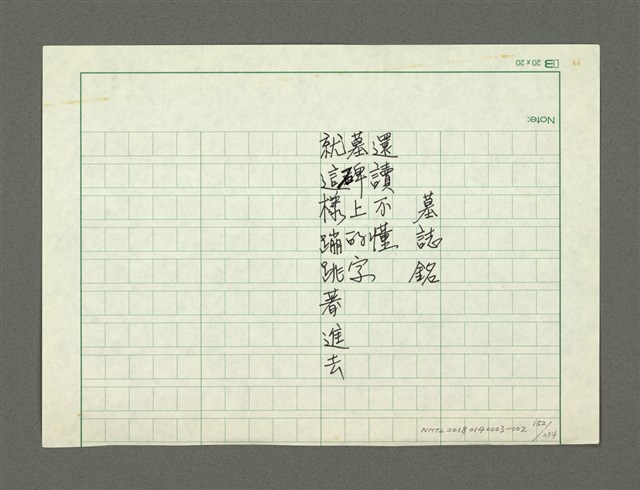 墓誌銘
還讀不懂
墓碑上的字
就這樣蹦跳著進去
Note:
20 x 20
NMTL20180140003-002
152/234